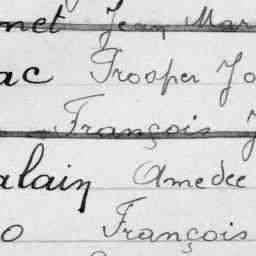 net Jean Mar
ac Prosper Jo
François J
alain Amedee
o François